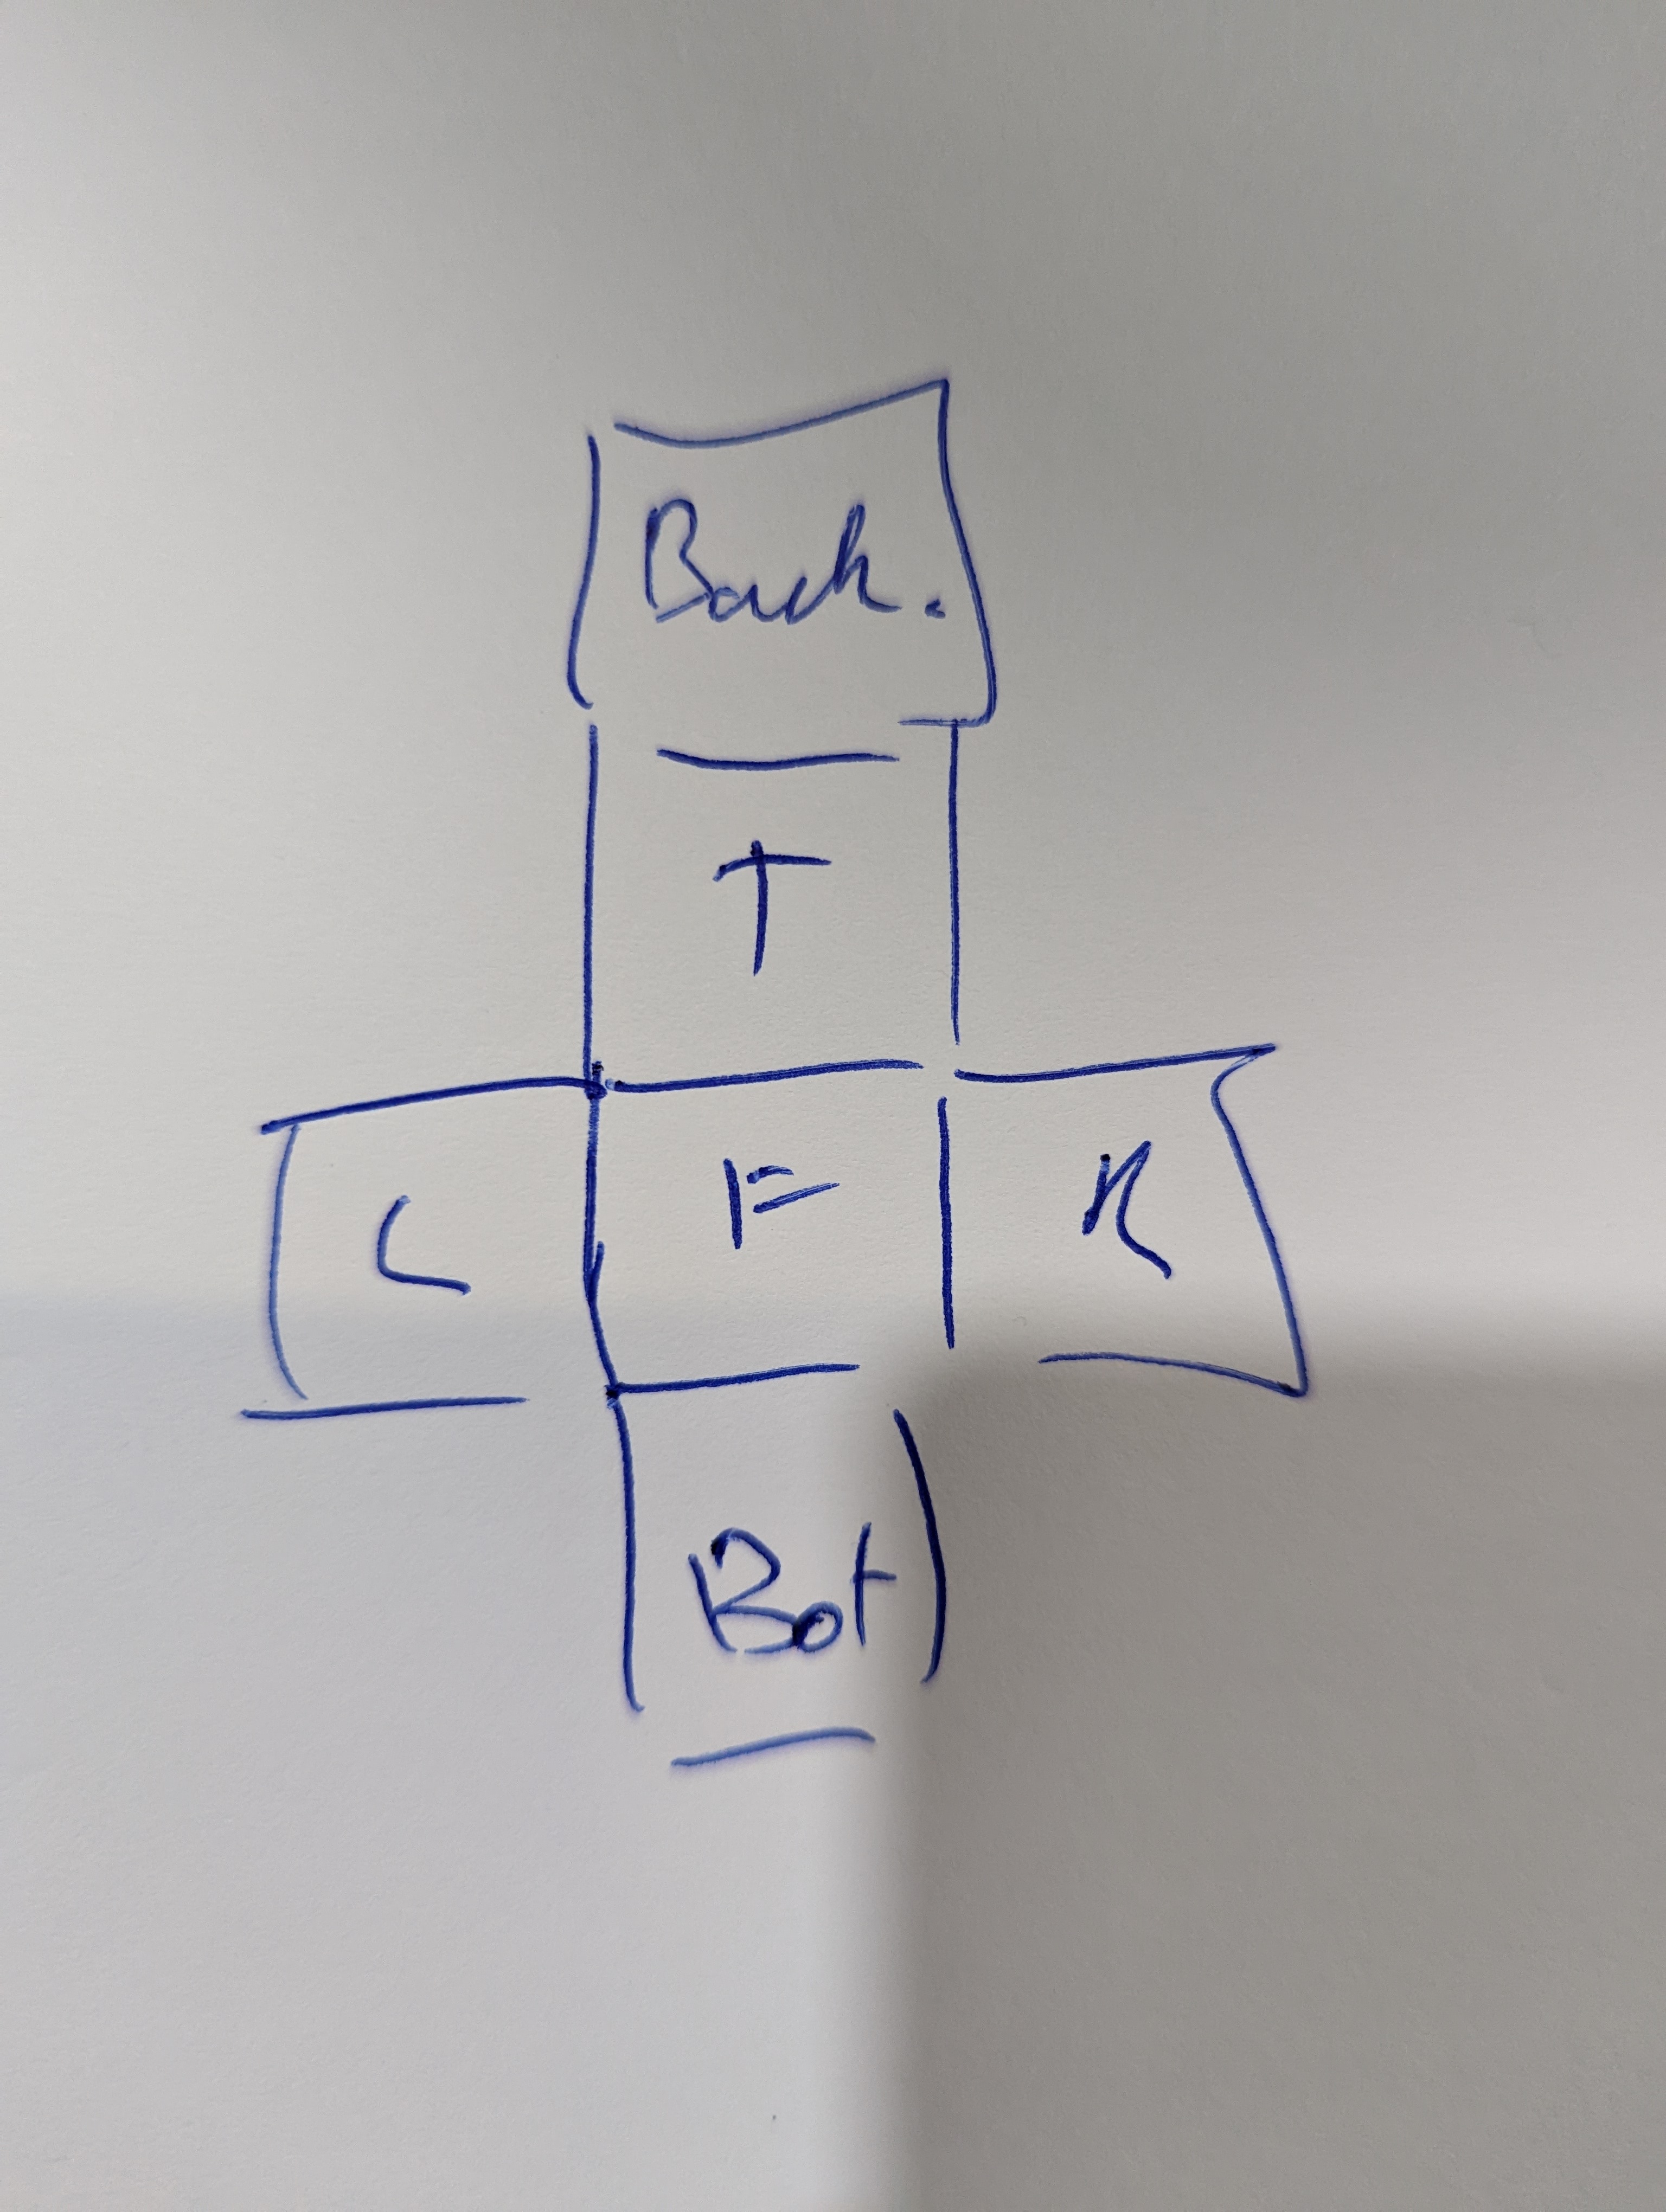 Back.
T
L F R
Bot